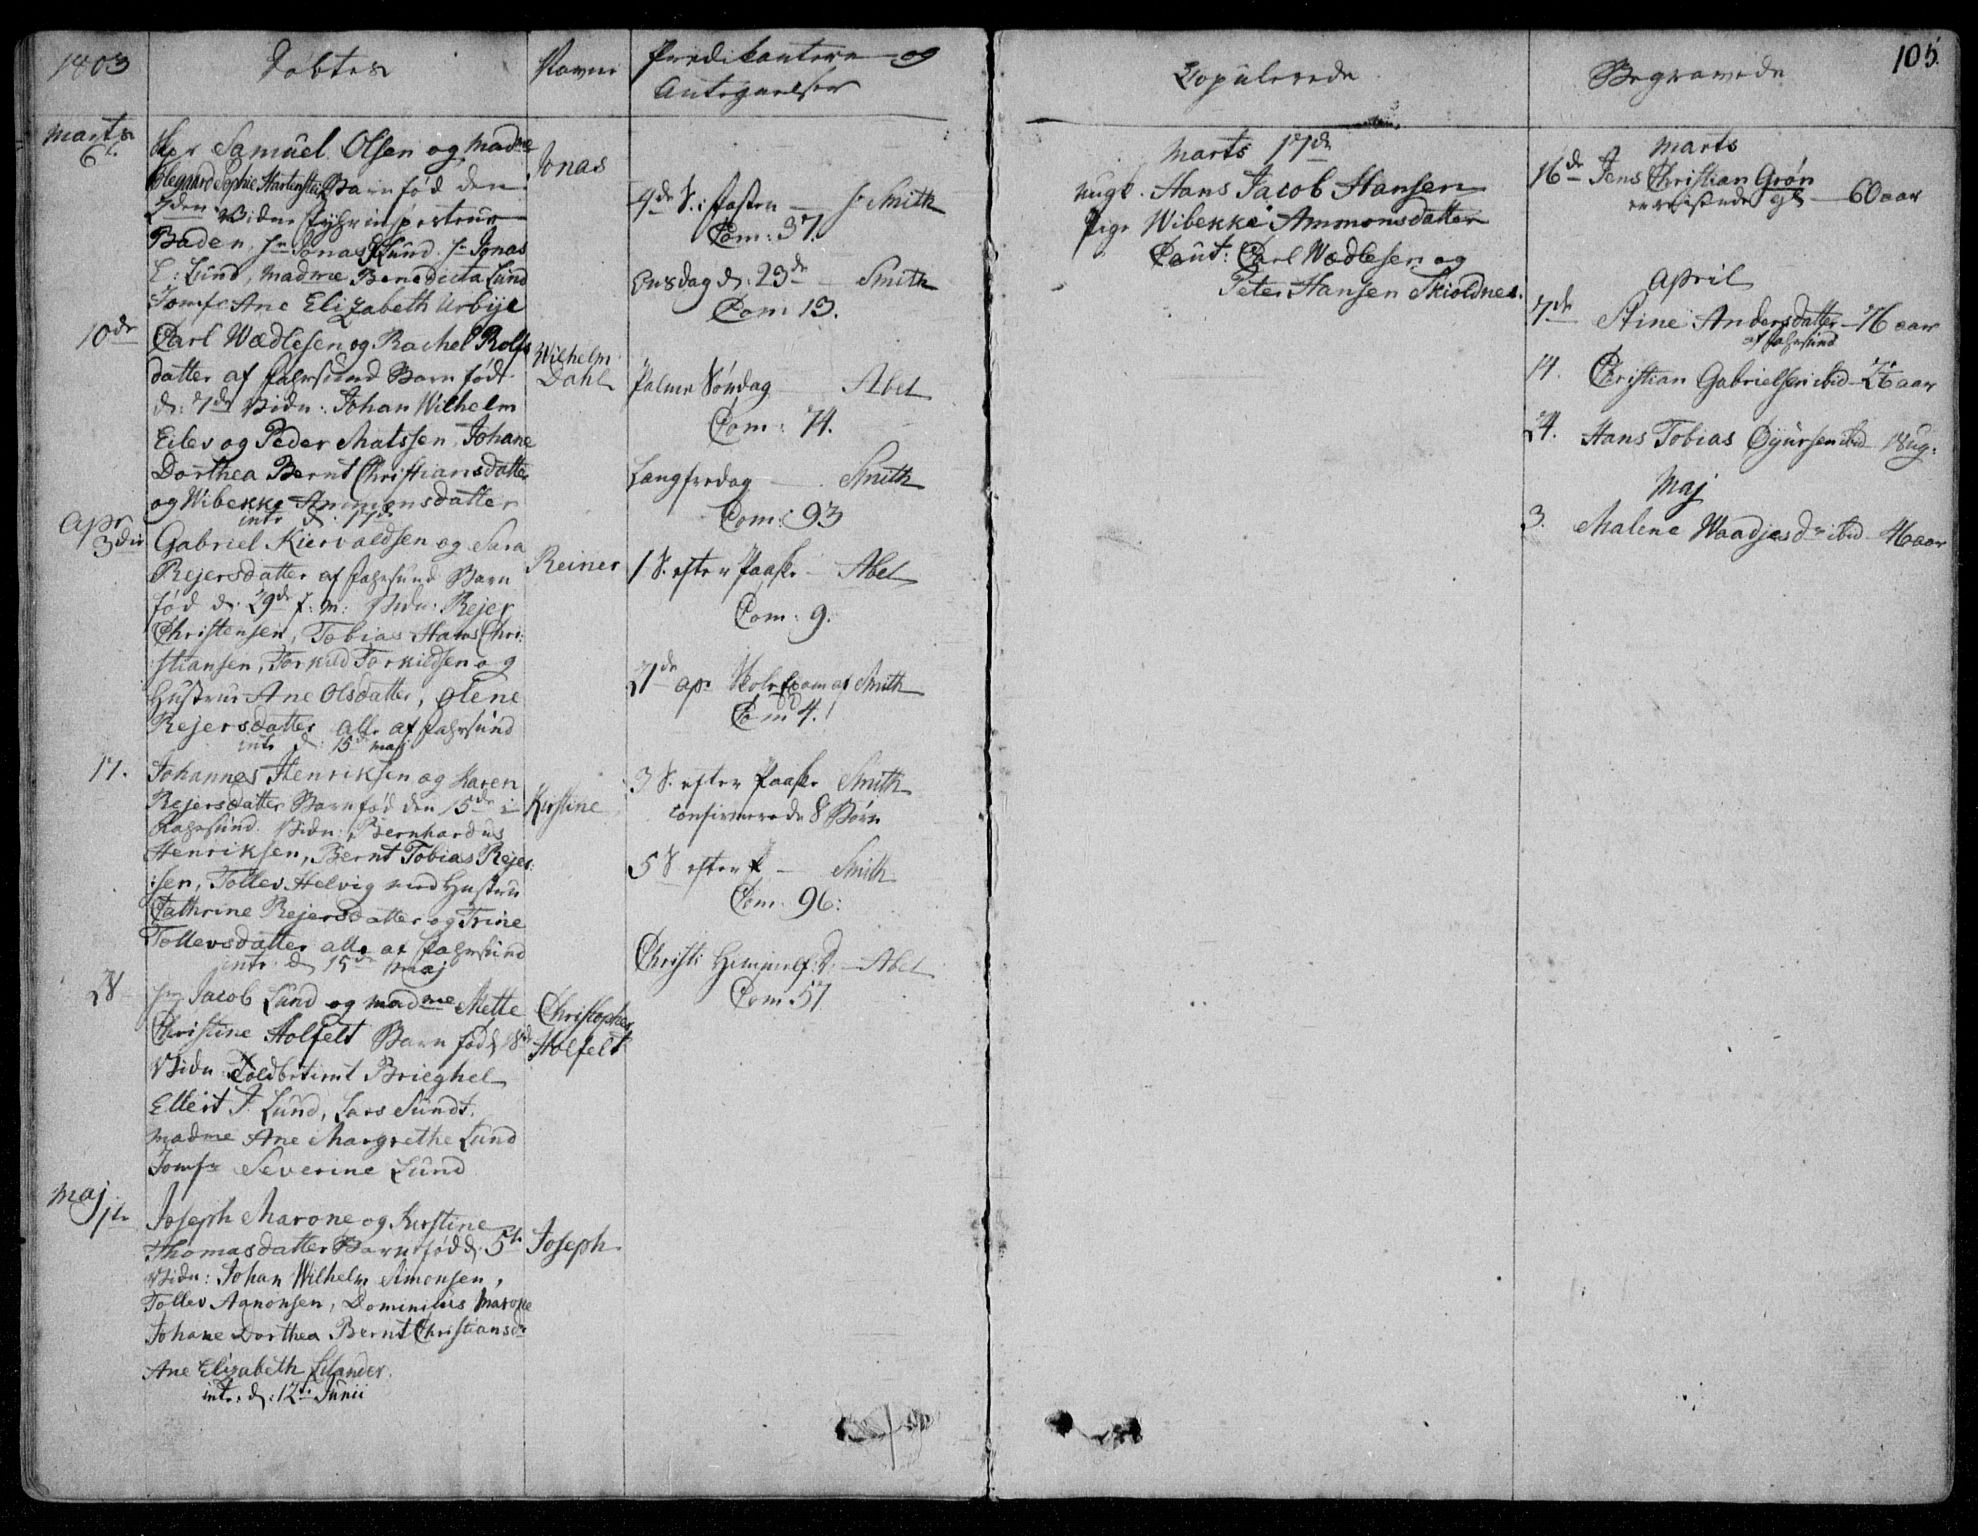 1803
Døbte
Navne
Predikantere og
Antegnelser
Marts
6te
Hr Samuel Olsen og Madme
Sophie Barn fød den
2den Vidne
Baden, Hr Jonas Lund. Hr Jonas
L: Lund, Madme Benedicta Lund
Jomfr Ane Elizabeth Urbye
Jonas
10de
Carl Wædlesen og Rachel Rolfs
datter af Fahrsund Barn født
d: 7de Vidn: Johan Wilhelm
Eilev og Peder Matssen, Johane
Dorthea Bernt Christiansdatter
og Wibekke Ammonsdatter
intr d. 17de
Wilhelm
Dahl
Apr
3die
Gabriel Kiervaldsen og Sara
Rejersdatter af Fahrsund Barn
fød d: 29de f: m: Vidn: Rejer
Christensen, Tobias Hans Chri:
stiansen, Torkild Torkildsen og
Hustrue Ane Olsdatter, Olene
Rejersdatter alle af Fahrsund
intr d: 15de maj
Reiner
17.
Johannes Henriksen og Karen
Rejersdatter Barn fød den 15de i
Fahrsund. Vidn: Bernhardus
Henriksen, Bernt Tobias Rejer:
:sen, Tollev Helvig med Hustru
Cathrine Rejersdatter og Trine
Tollevsdatter alle af Fahrsund
intr: d 15de maj
Kirstine
28
Hr Jacob Lund og Madme Mette
Christine Holfelt Barn fød d 18de
Vidn: Toldbetient Brieghel
Ellert J. Lund, Lars Sundt.
Madme Ane Margrethe Lund
Jomfr Severine Lund
Christopher
Holfelt
Maj
1te
Joseph Marone og Kirstine
Thomasdatter Barn fød d: 5te
Vidn: Johan Wilhelm Simonsen,
Tollev Aanonsen, Dominicus Marone
Johane Dorthea Bernt Christiansdr
Ane Elizabeth
intr: d: 12te Junii
Joseph
4de S. i Fasten — Hr Smith
Com: 37.
Onsdag d: 23de — Smith
Com 13.
Palme Søndag — Abel
Com: 74.
Langfredag — Smith
Com: 93
1 S. efter Paaske — Abel
Com: 9.
27de apr Smith
Com 4.
3 S. efter Paaske Smith
confirmerede 8 Børn
5 S efter P — Smith
Com. 96:
Christi Himmelf: D. — Abel
Com. 57
Copulerede
Marts 17de
Ungk. Hans Jacob Hansen
Pige Wibekke Ammonsdatter
Caut: Carl Wædlesen og
Peter Hansen Skioldnes.
Begravede
105.
Marts
16de Jens Christian Grøn
60 aar
April
7de Stine Andersdatter — 76 aar
af Fahrsund
14. Christian Gabrielsen ibid — 26 aar
24. Hans Tobias ibid 18 ug:
Maj
3. Malene Waadjesdr ibid 46 aar